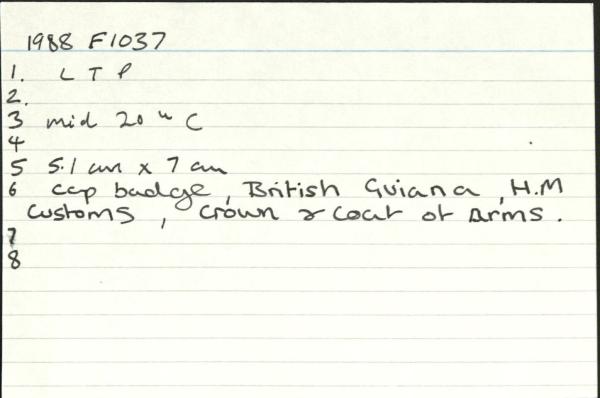 1988 F1037
1. L T P
2.
3 mid 20th C
4
5 5.1 cm x 7 cm
6 cap badge, British Guiana, H.M
Customs, crown & coat of arms.
7
8